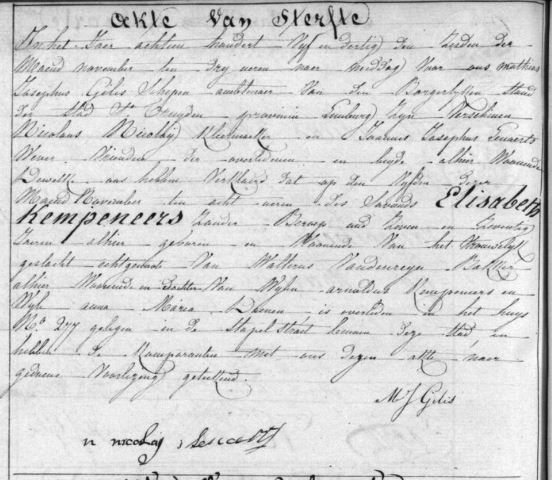 Akte Van Sterfte
In het Jaer achtien hondert Vyf en dertig den Zesden der
Maend november ten dry ueren naer middag Voor ons mathias
Josephus Gelis Schepen ambtenaer Van den Borgerlyken stand
der Stad St Truyden provincie Limburg Zyn Verschenen
Nicolaus Nicolaÿ Kleermaeker en Joannes Josephus
Wever Vrienden der overledenen en beyde alhier Woonende
Dewelke ons hebben Verklaerd dat op den Vyfden dezer
Maend November ten acht ueren des Savonds Elisabeth
Kempeneers Zonder Beroep oud Zeven en Zeventig
Jaeren alhier geboren en Woonende Van het Vrouwelyk
geslacht echtgenoot Van Walterus Vandenreyn Bakker
alhier Woonende en Dochter Van Wylen arnoldus Kempeneers en
Wyle anna Maria is overleden in het huys
No 277 gelegen in de Stapel Straet binnen deze stad en
hebben de Komparanten met ons dezen akte naer
gedaene Voorlezing geteekend.
M J Gelis
n nicolaÿ